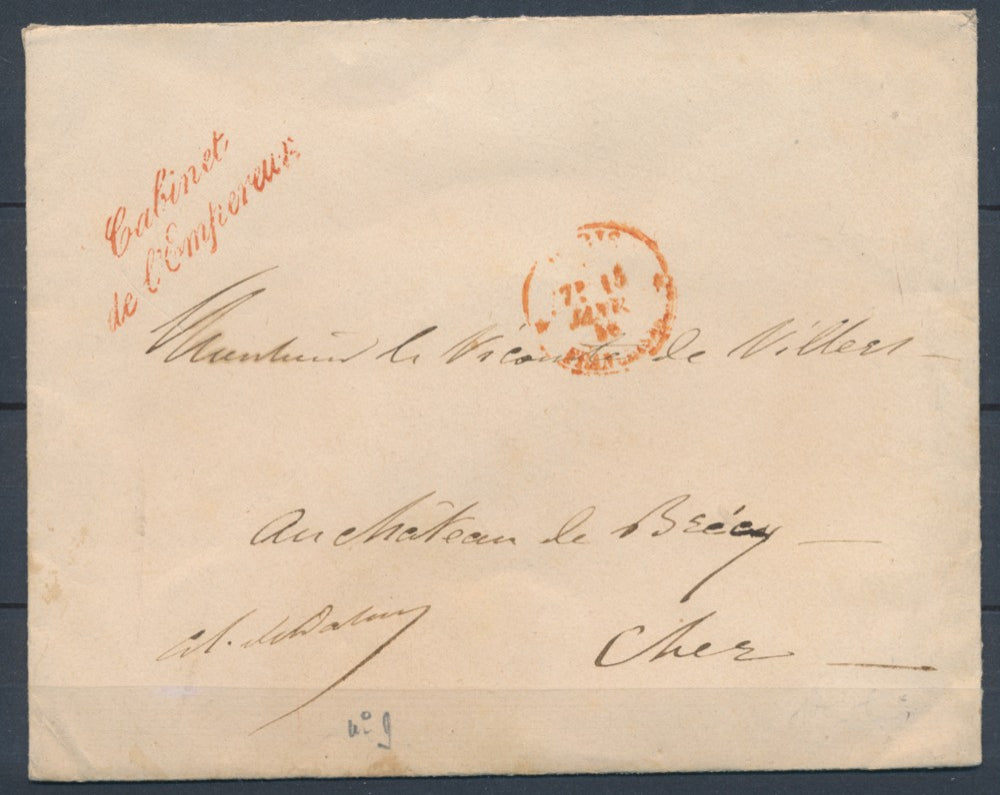 Cabinet
de l'Empereur
15
JANV
Monsieur le Vicomte de Villers —
au château de Brécy —
Cher —
n° 9